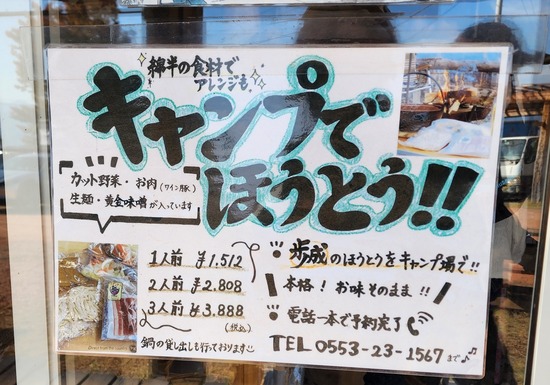 綿半の食材で
アレンジも♪
キャンプで
ほうとう!!
カット野菜・お肉(ワイン豚)
生麺・黄金味噌が入っています
1人前 ¥1,512
2人前 ¥2,808
3人前 ¥3,888
(税込)
鍋の貸し出しも行っております
歩成のほうとうをキャンプ場で!!
本格!お味そのまま!!
電話一本で予約完了
TEL 0553-23-1567まで♪